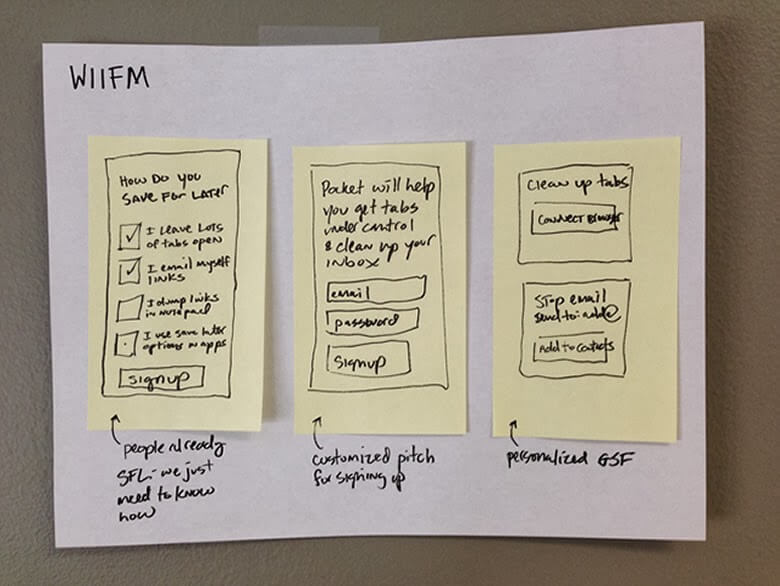 WIIFM
HOW DO YOU
SAVE FOR LATER
I LEAVE LOTS
of tabs open
I email myself
links
I dump links
in notepad
I use save later
options in apps
signup
people already
SFL - we just
need to know
how
Pocket will help
you get tabs
under control
& clean up your
inbox
email
password
signup
customized pitch
for signing up
clean up tabs
CONNECT Browser
Stop email
send to: add@
Add to Contacts
personalized GSF